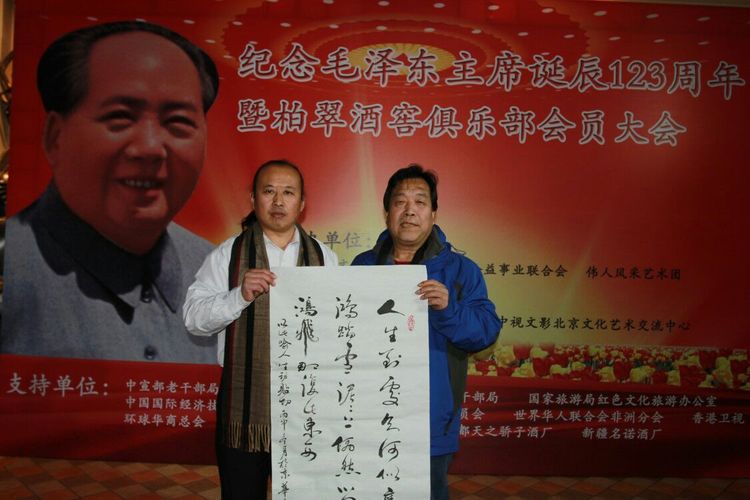 纪念毛泽东主席诞辰123周年
暨柏翠酒窖俱乐部会员大会
单位：
益事业联合会 伟人风采艺术团
中视文影北京文化艺术交流中心
支持单位：
中宣部老干部局 干部局 国家旅游局红色文化旅游办公室
中国国际经济技 员会 世界华人联合会非洲分会 香港卫视
环球华商总会 都天之骄子酒厂 新疆名诺酒厂
人生到處知何似
鸿踏雪泥泥上偶然
鸿飛那復计東西